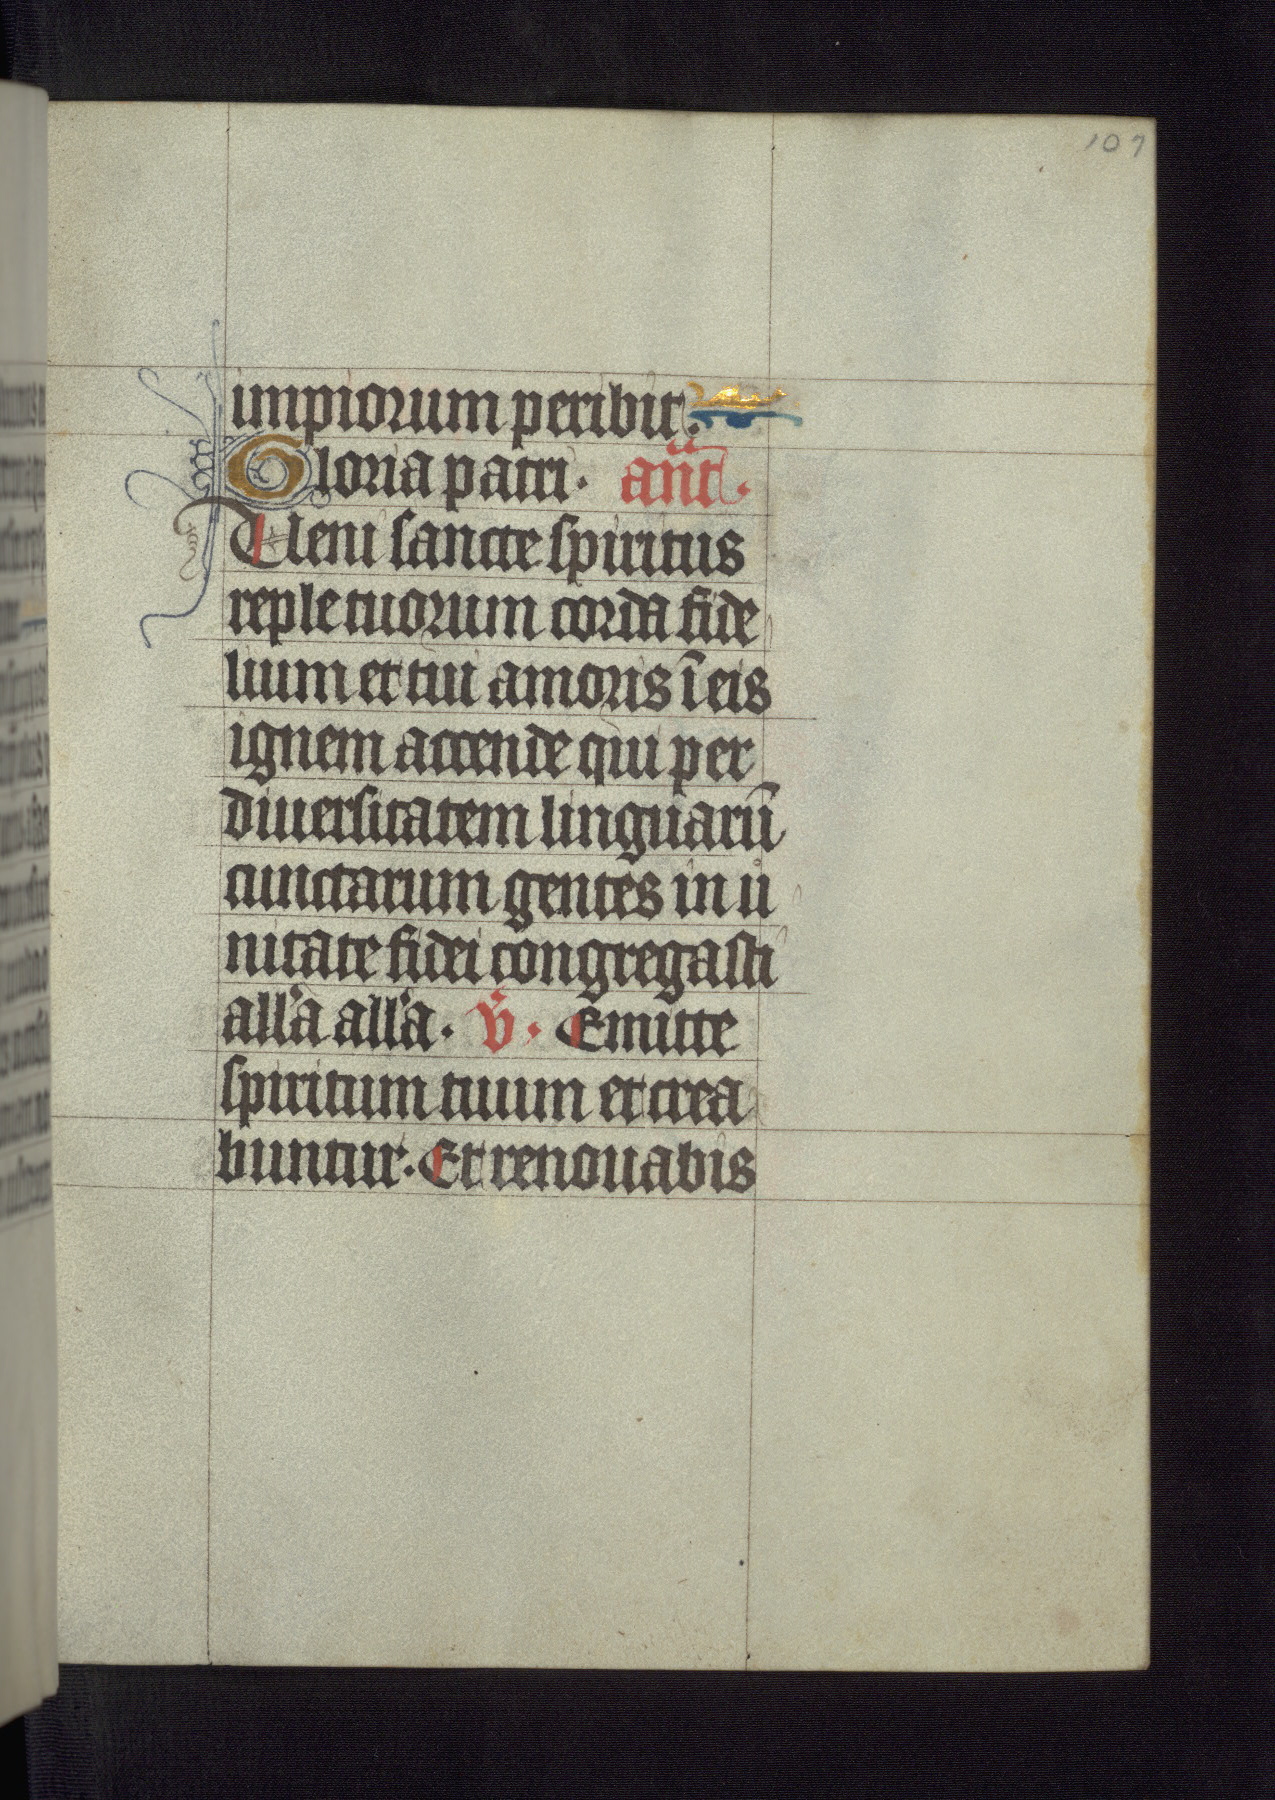 107
impiorum peribit.
Gloria patri. añt.
Ueni sancte spiritus
reple tuorum corda fide
lium et tui amoris ī eis
ignem accende qui per
diuersitatem linguarū
cunctarum gentes in u
nitate fidei congregasti
all'a all'a. v̄. Emitte
spiritum tuum et crea
buntur. Et renouabis